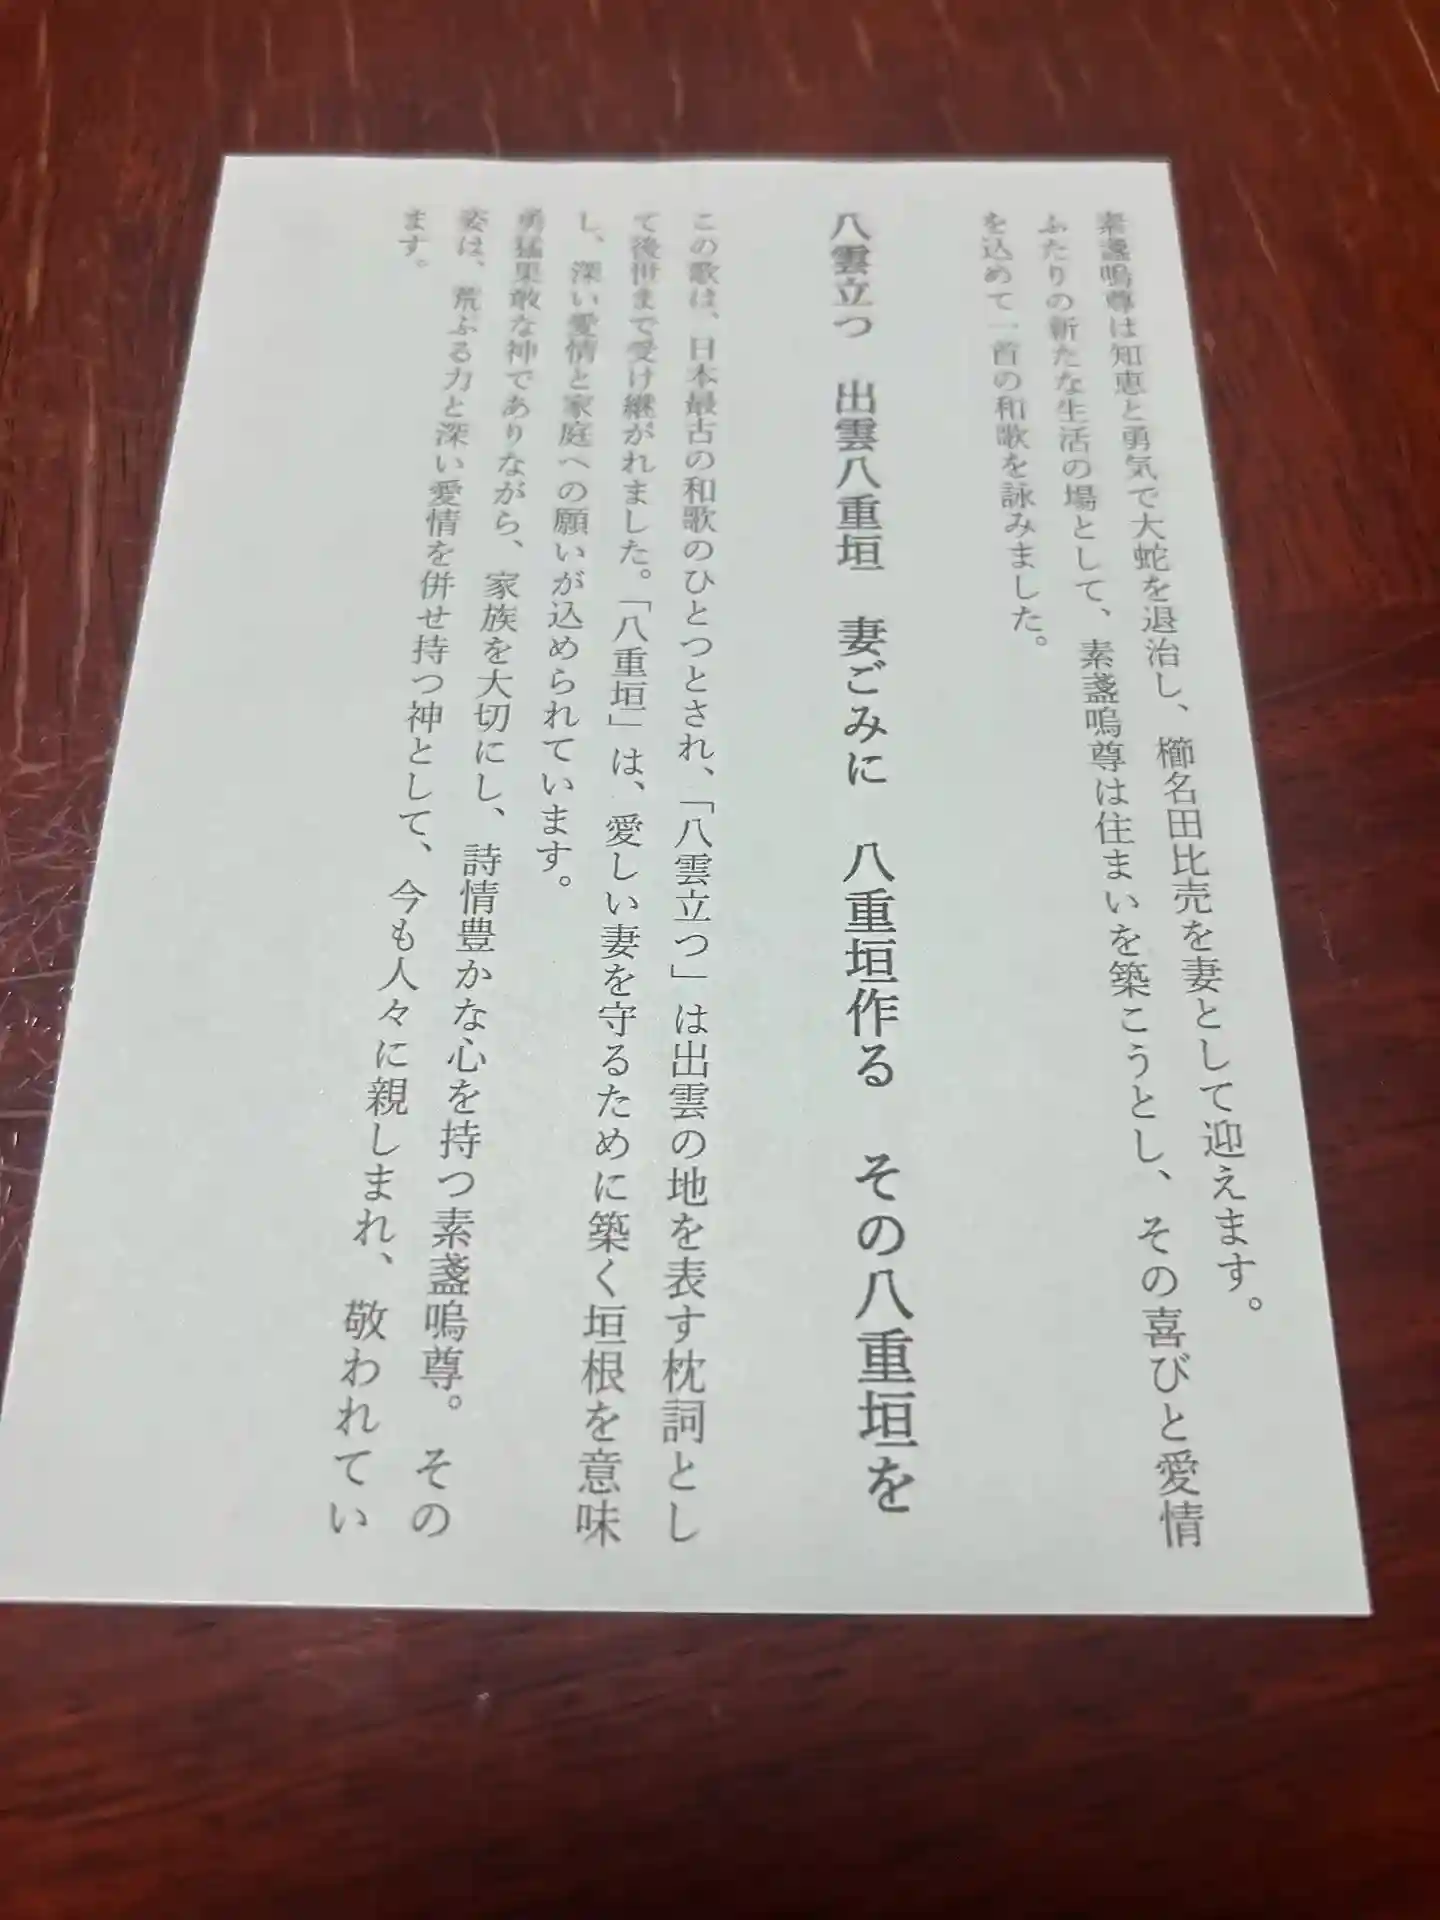 素盞嗚尊は知恵と勇気で大蛇を退治し、櫛名田比売を妻として迎えます。
ふたりの新たな生活の場として、素盞嗚尊は住まいを築こうとし、その喜びと愛情
を込めて一首の和歌を詠みました。
八雲立つ　出雲八重垣　妻ごみに　八重垣作る　その八重垣を
この歌は、日本最古の和歌のひとつとされ、「八雲立つ」は出雲の地を表す枕詞とし
て後世まで受け継がれました。「八重垣」は、愛しい妻を守るために築く垣根を意味
し、深い愛情と家庭への願いが込められています。
勇猛果敢な神でありながら、家族を大切にし、詩情豊かな心を持つ素盞嗚尊。その
姿は、荒ぶる力と深い愛情を併せ持つ神として、今も人々に親しまれ、敬われてい
ます。